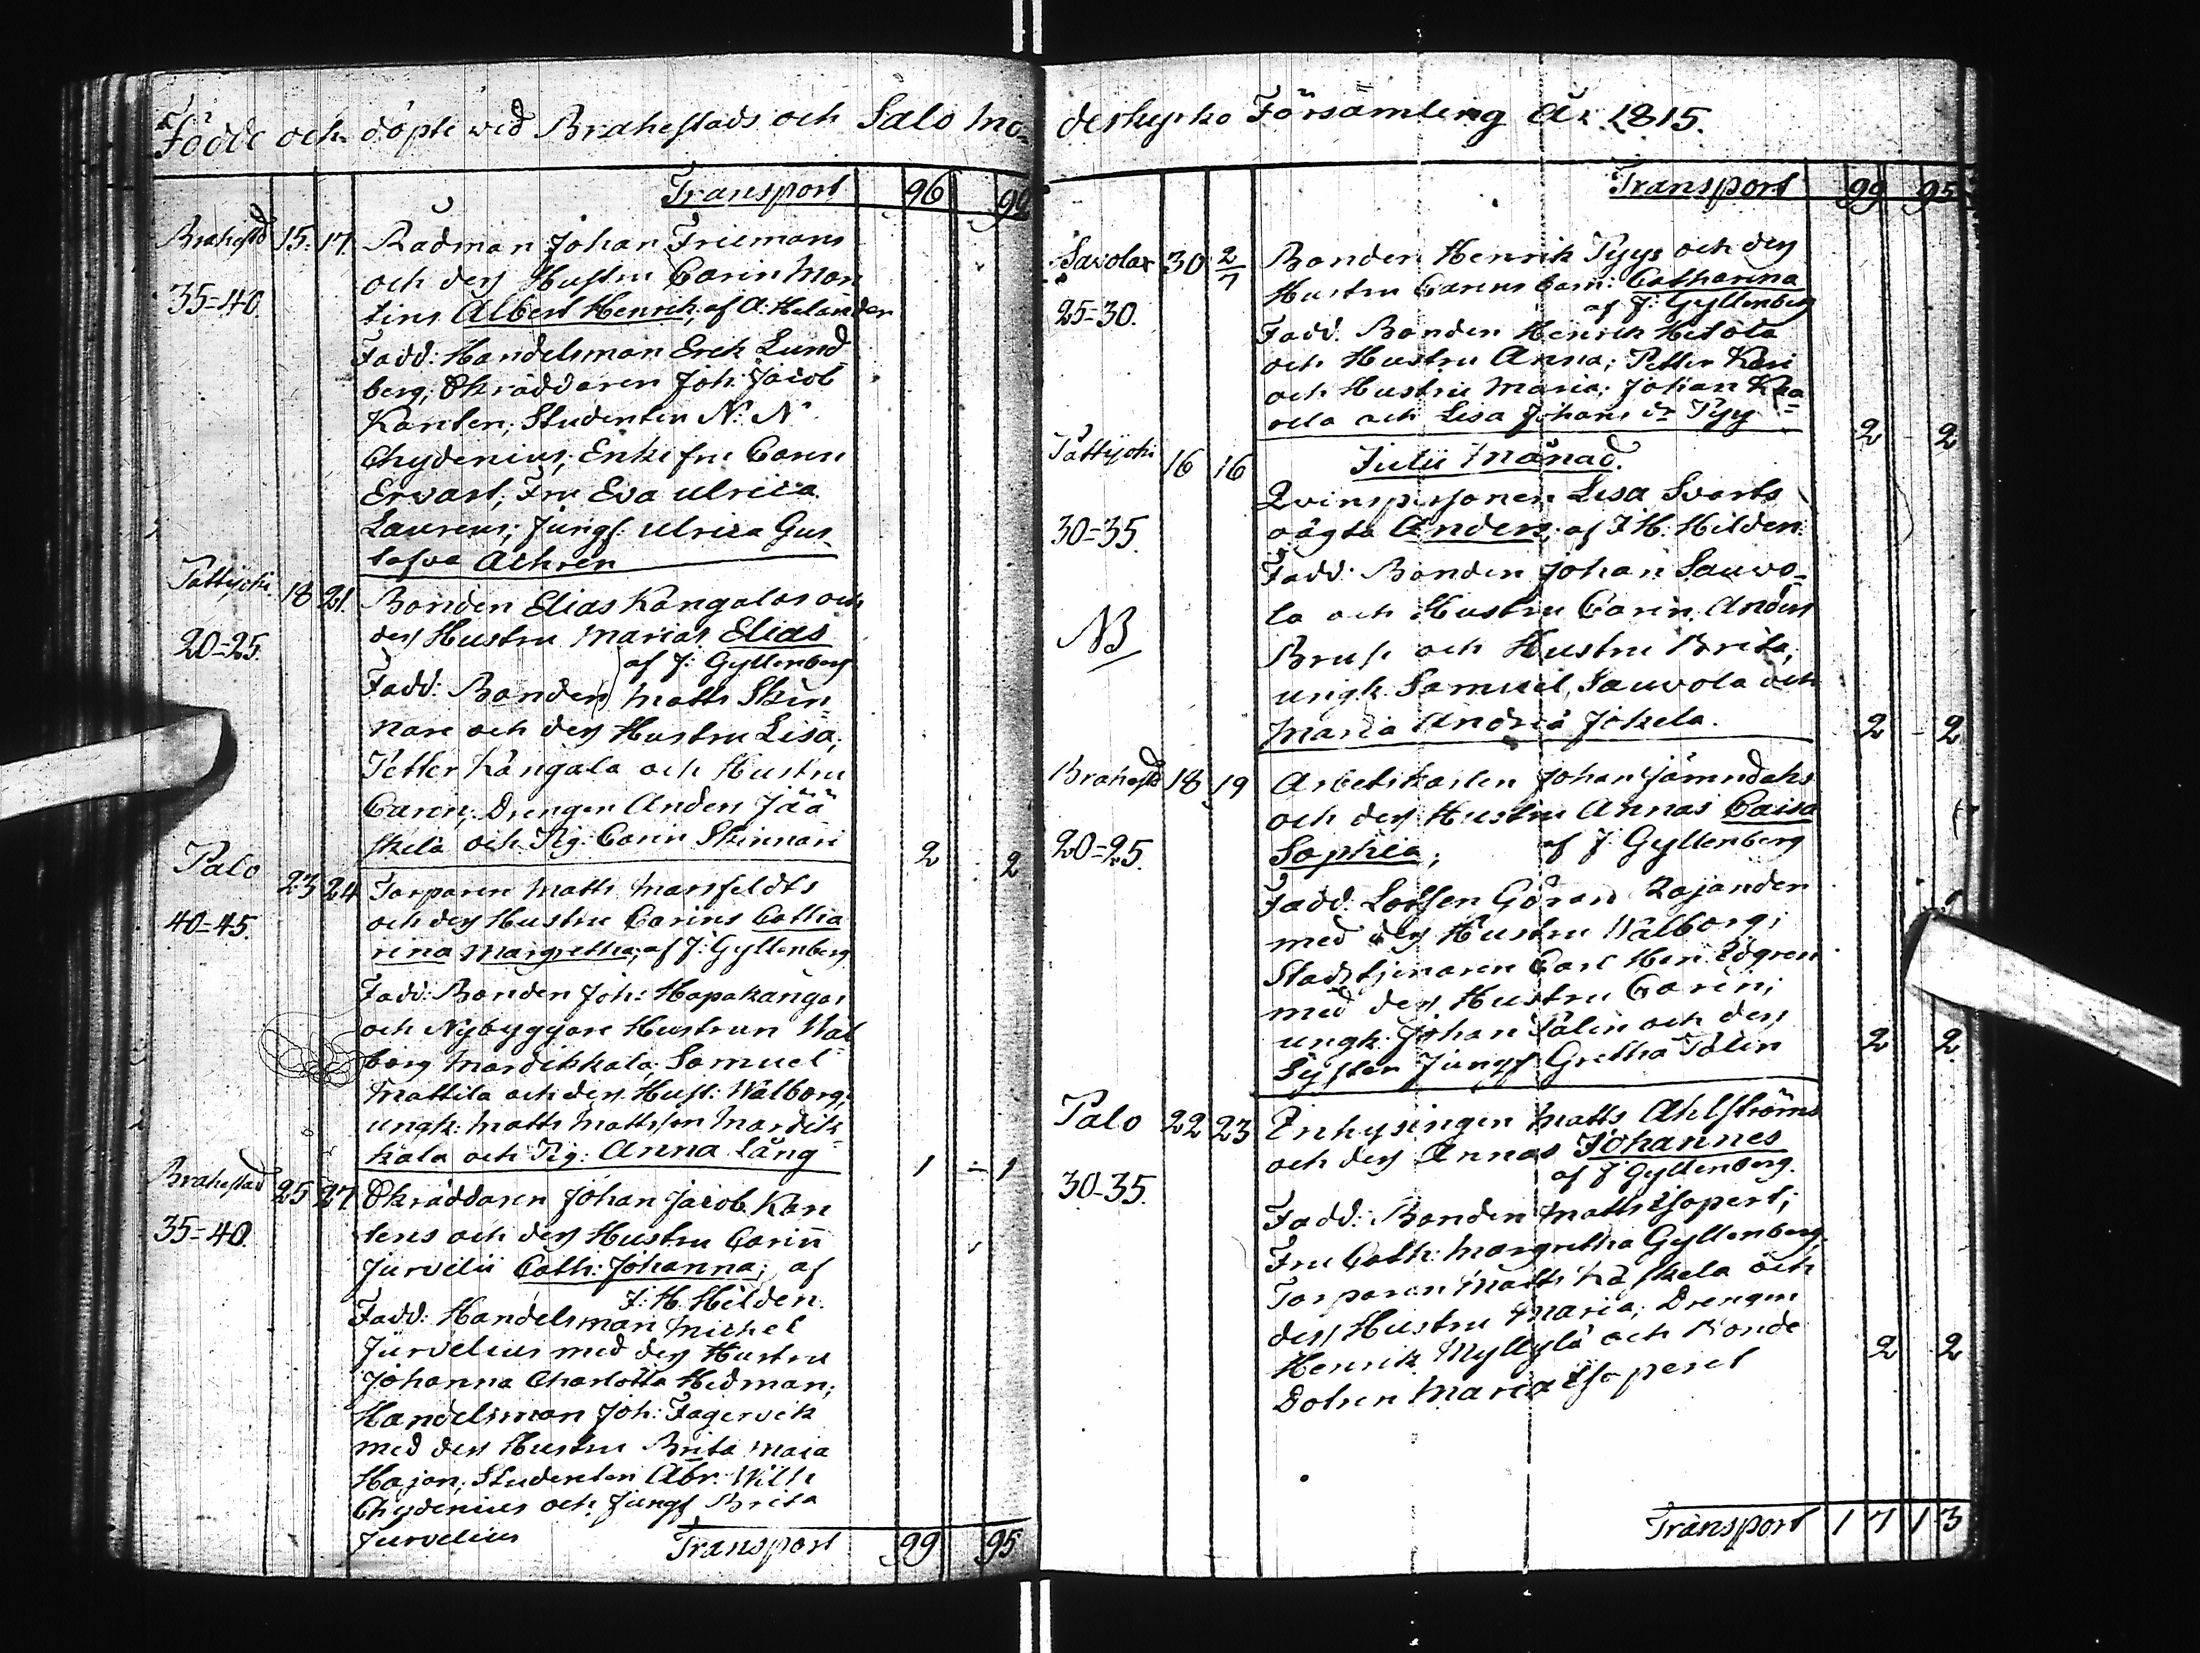 Födde och döpte wid Brahestads och Salo Mo-
Transport 96 92
Brahestd 15. 17. Rådman Johan Friemans
och dess Hustru Carin Mar
35=40 tins Albert Henrik, af A: Helander
Fadd: Handelsman Erek Lund
berg; Skräddaren Joh: Jacob
Kanten; Studenten N: N:
Chydenius; Enkefru Carin
Ervast; Fru Eva Ulrica
Laurens; Jungf. Ulrica Gus
tafva Achren
Pattijoki 18 21. Bonden Elias Kangalas och
dess Hustru Marias Elias
20=25. af J: Gyllenberg
Fadd: Bonden Matts Skin
nare och dess Hustru Lisa;
Petter Kangala och Hustru
Carin; Drengen Anders Jää
skelä och Pig: Carin Skinnari 2 2
Palo 23 24 Torparen Matts Mansfeldts
och dess Hustru Carins Catha
40=45. rina Margretha; af J: Gyllenberg
Fadd: Bonden Joh: Hapakangas
och Nybyggare Hustrun Wal
borg Mardikkala Samuel
Mattila och dess Hust: Walborg;
ungk: Matts Mattsson Mardik=
kala och Pig: Anna Lång 1 - 1
Brahestad 25 27 Skräddaren Johan Jacob Kan
tens och dess Hustru Carin
35=40. Jurvelii Cath: Johanna; af
J: H. Hilden.
Fadd: Handelsman Michel
Jurvelius med dess Hustru
Johanna Charlotta Hedman;
Handelsman Joh: Fagervik
med dess Hustru Brita Maia
Hajan; Studenten Abr: Wilh
Chydenius och Jungf Brita
Jurvelius Transport 99 95
derkyrko Församling År 1815.
Transport 99 95
Savolax 30 2/7 Bonden Henrik Pyys och dess
Hustru Carins barn: Catharina
25-30. af J: Gyllenberg
Fadd. Bonden Henrik Hetola
och Hustru Anna; Petter Kari
och Hustru Maria; Johan Kaa=
och Lisa Johans dr Pyy 2 - 2
Julii Månad.
Pattijoki 16 16 Qvinspersonen Lisa Svarts
30=35. oägta Anders; af J H: Hilden:
Fadd: Bonden Johan Sauvo=
la och Hustru Carin. Anders
NB Brus och Hustru Brita;
ungk. Samuel Sauvola och
Maria Andersd Jokela. 2 - 2
Brahestd 18 19 Arbetskarlen Johan Jämndahs
och dess Hustru Annas Caisa
20=25. Sophia; af J: Gyllenberg
Fadd: Lotsen Göran Rajander
med dess Hustru Walborg;
Stadstjenaren Carl Hen: Lögren
med dess Hustru Carin;
ungk: Johan Palin och dess
Syster Jungf Gretha Palin 2 2.
Palo 22 23 Inhysingen Matts Ahlströms
och dess Annas Johannes
30-35. af J Gyllenberg.
Fadd: Bonden Matts Isopert;
Fru Cath: Margretha Gyllenberg
Torparen Matts Kåskela och
dess Hustru Maria; Drengen
Henrik Myllylä och Bonde 2 2
Dotren Maria Isoperet
Transport 17 13